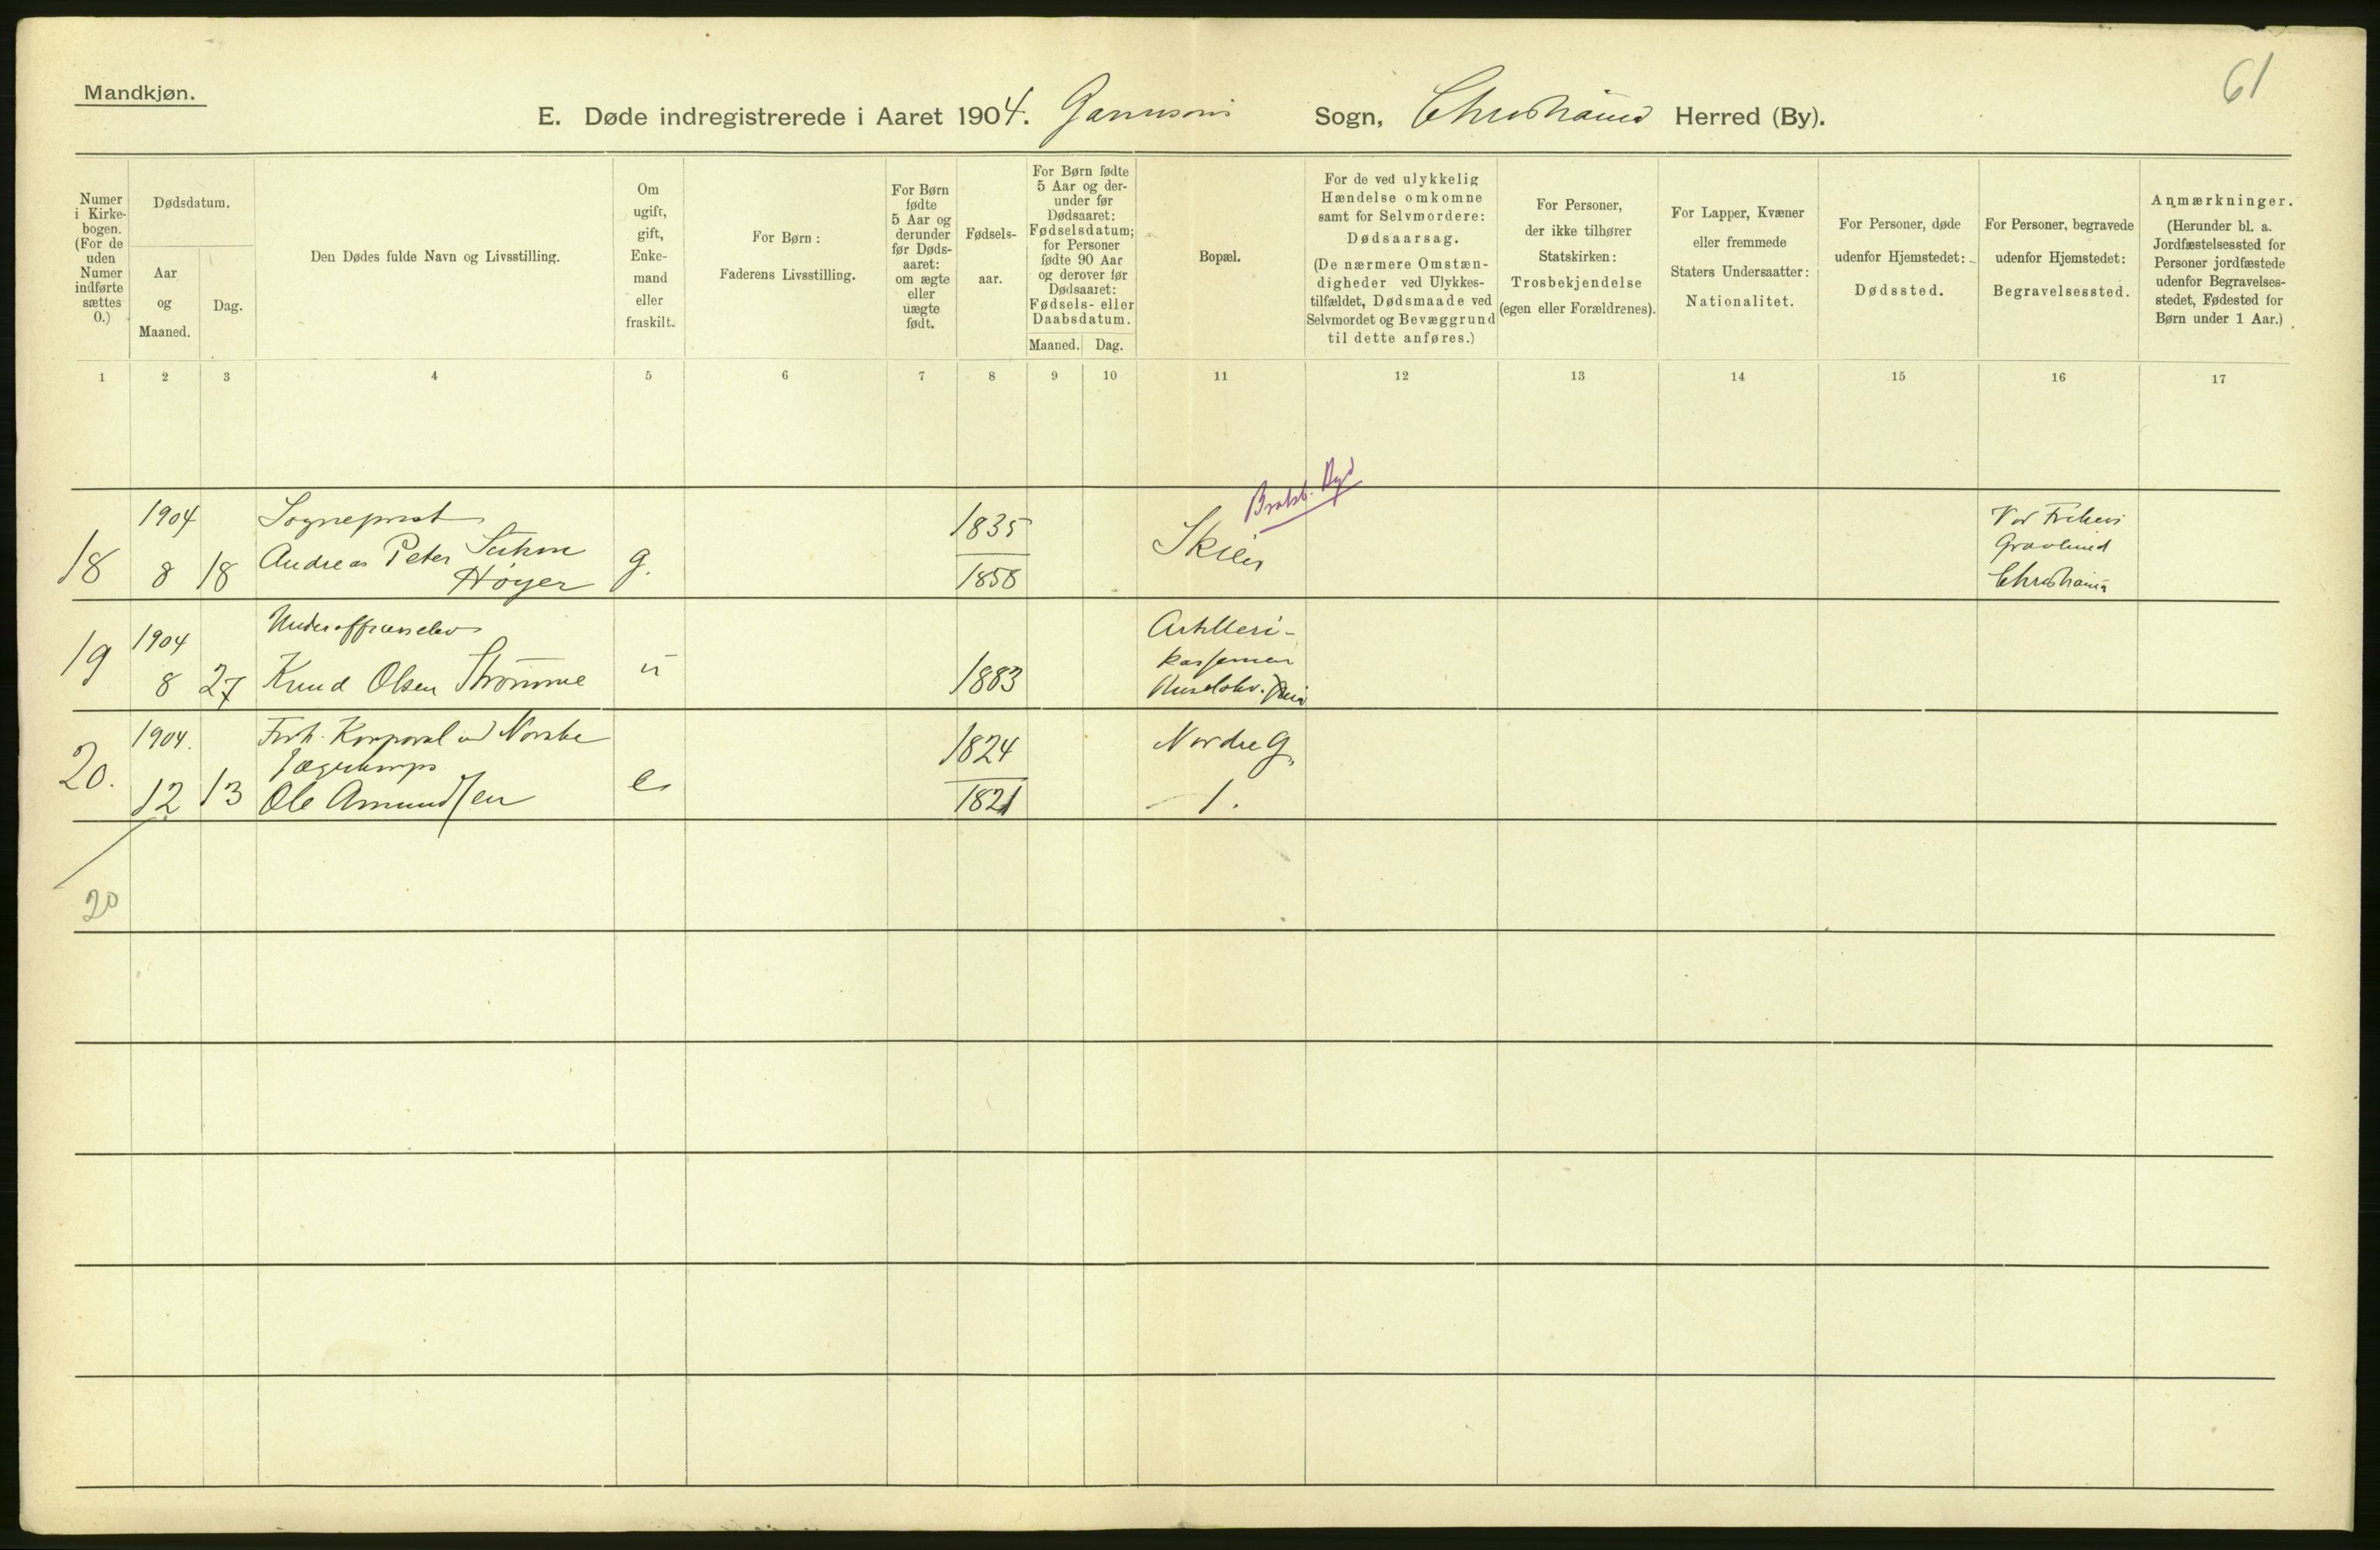 Mandkjøn.
61
E. Døde indregistrerede i Aaret 1904. Garnisons Sogn, Christiania Herred (By).
Numer i Kirkebogen. (For de uden Numer indførte sættes 0.)
Dødsdatum.
Aar og Maaned.
Dag.
Den Dødes fulde Navn og Livsstilling.
Om ugift, gift, Enkemand eller fraskilt.
For Børn:
Faderens Livsstilling.
For Børn fødte 5 Aar og derunder før Dødsaaret: om ægte eller uægte født.
Fødselsaar.
For Børn fødte 5 Aar og derunder før Dødsaaret: Fødselsdatum; for Personer fødte 90 Aar og derover før Dødsaaret: Fødsels- eller Daabsdatum.
Maaned. Dag.
Bopæl.
For de ved ulykkelig Hændelse omkomne samt for Selvmordere: Dødsaarsag.
(De nærmere Omstændigheder ved Ulykkestilfældet, Dødsmaade ved Selvmordet og Bevæggrund til dette anføres.)
For Personer, der ikke tilhører Statskirken: Trosbekjendelse (egen eller Forældrenes).
For Lapper, Kvæner eller fremmede Staters Undersaatter: Nationalitet.
For Personer, døde udenfor Hjemstedet: Dødssted.
For Personer, begravede udenfor Hjemstedet: Begravelsessted.
Anmærkninger.
(Herunder bl. a. Jordfæstelsessted for Personer jordfæstede udenfor Begravelsesstedet, Fødested for Børn under 1 Aar.)
1 2 3 4 5 6 7 8 9 10 11 12 13 14 15 16 17
Bratsb.
1904 Sogneprest 1835 Vor Frelsers
18 8 18 Andreas Peter g. Skien Gravlund
Høyer 1858 Christiania
1904 Underofficerselev Artilleri-
19 8 27 Knud Olsen Strømme u 1883 kasernen
1904. Forh. Korporal ved Norske 1824 Nordre G.
20. Jægerkorps
12 13 Ole Amundsen e 1821 1.
20